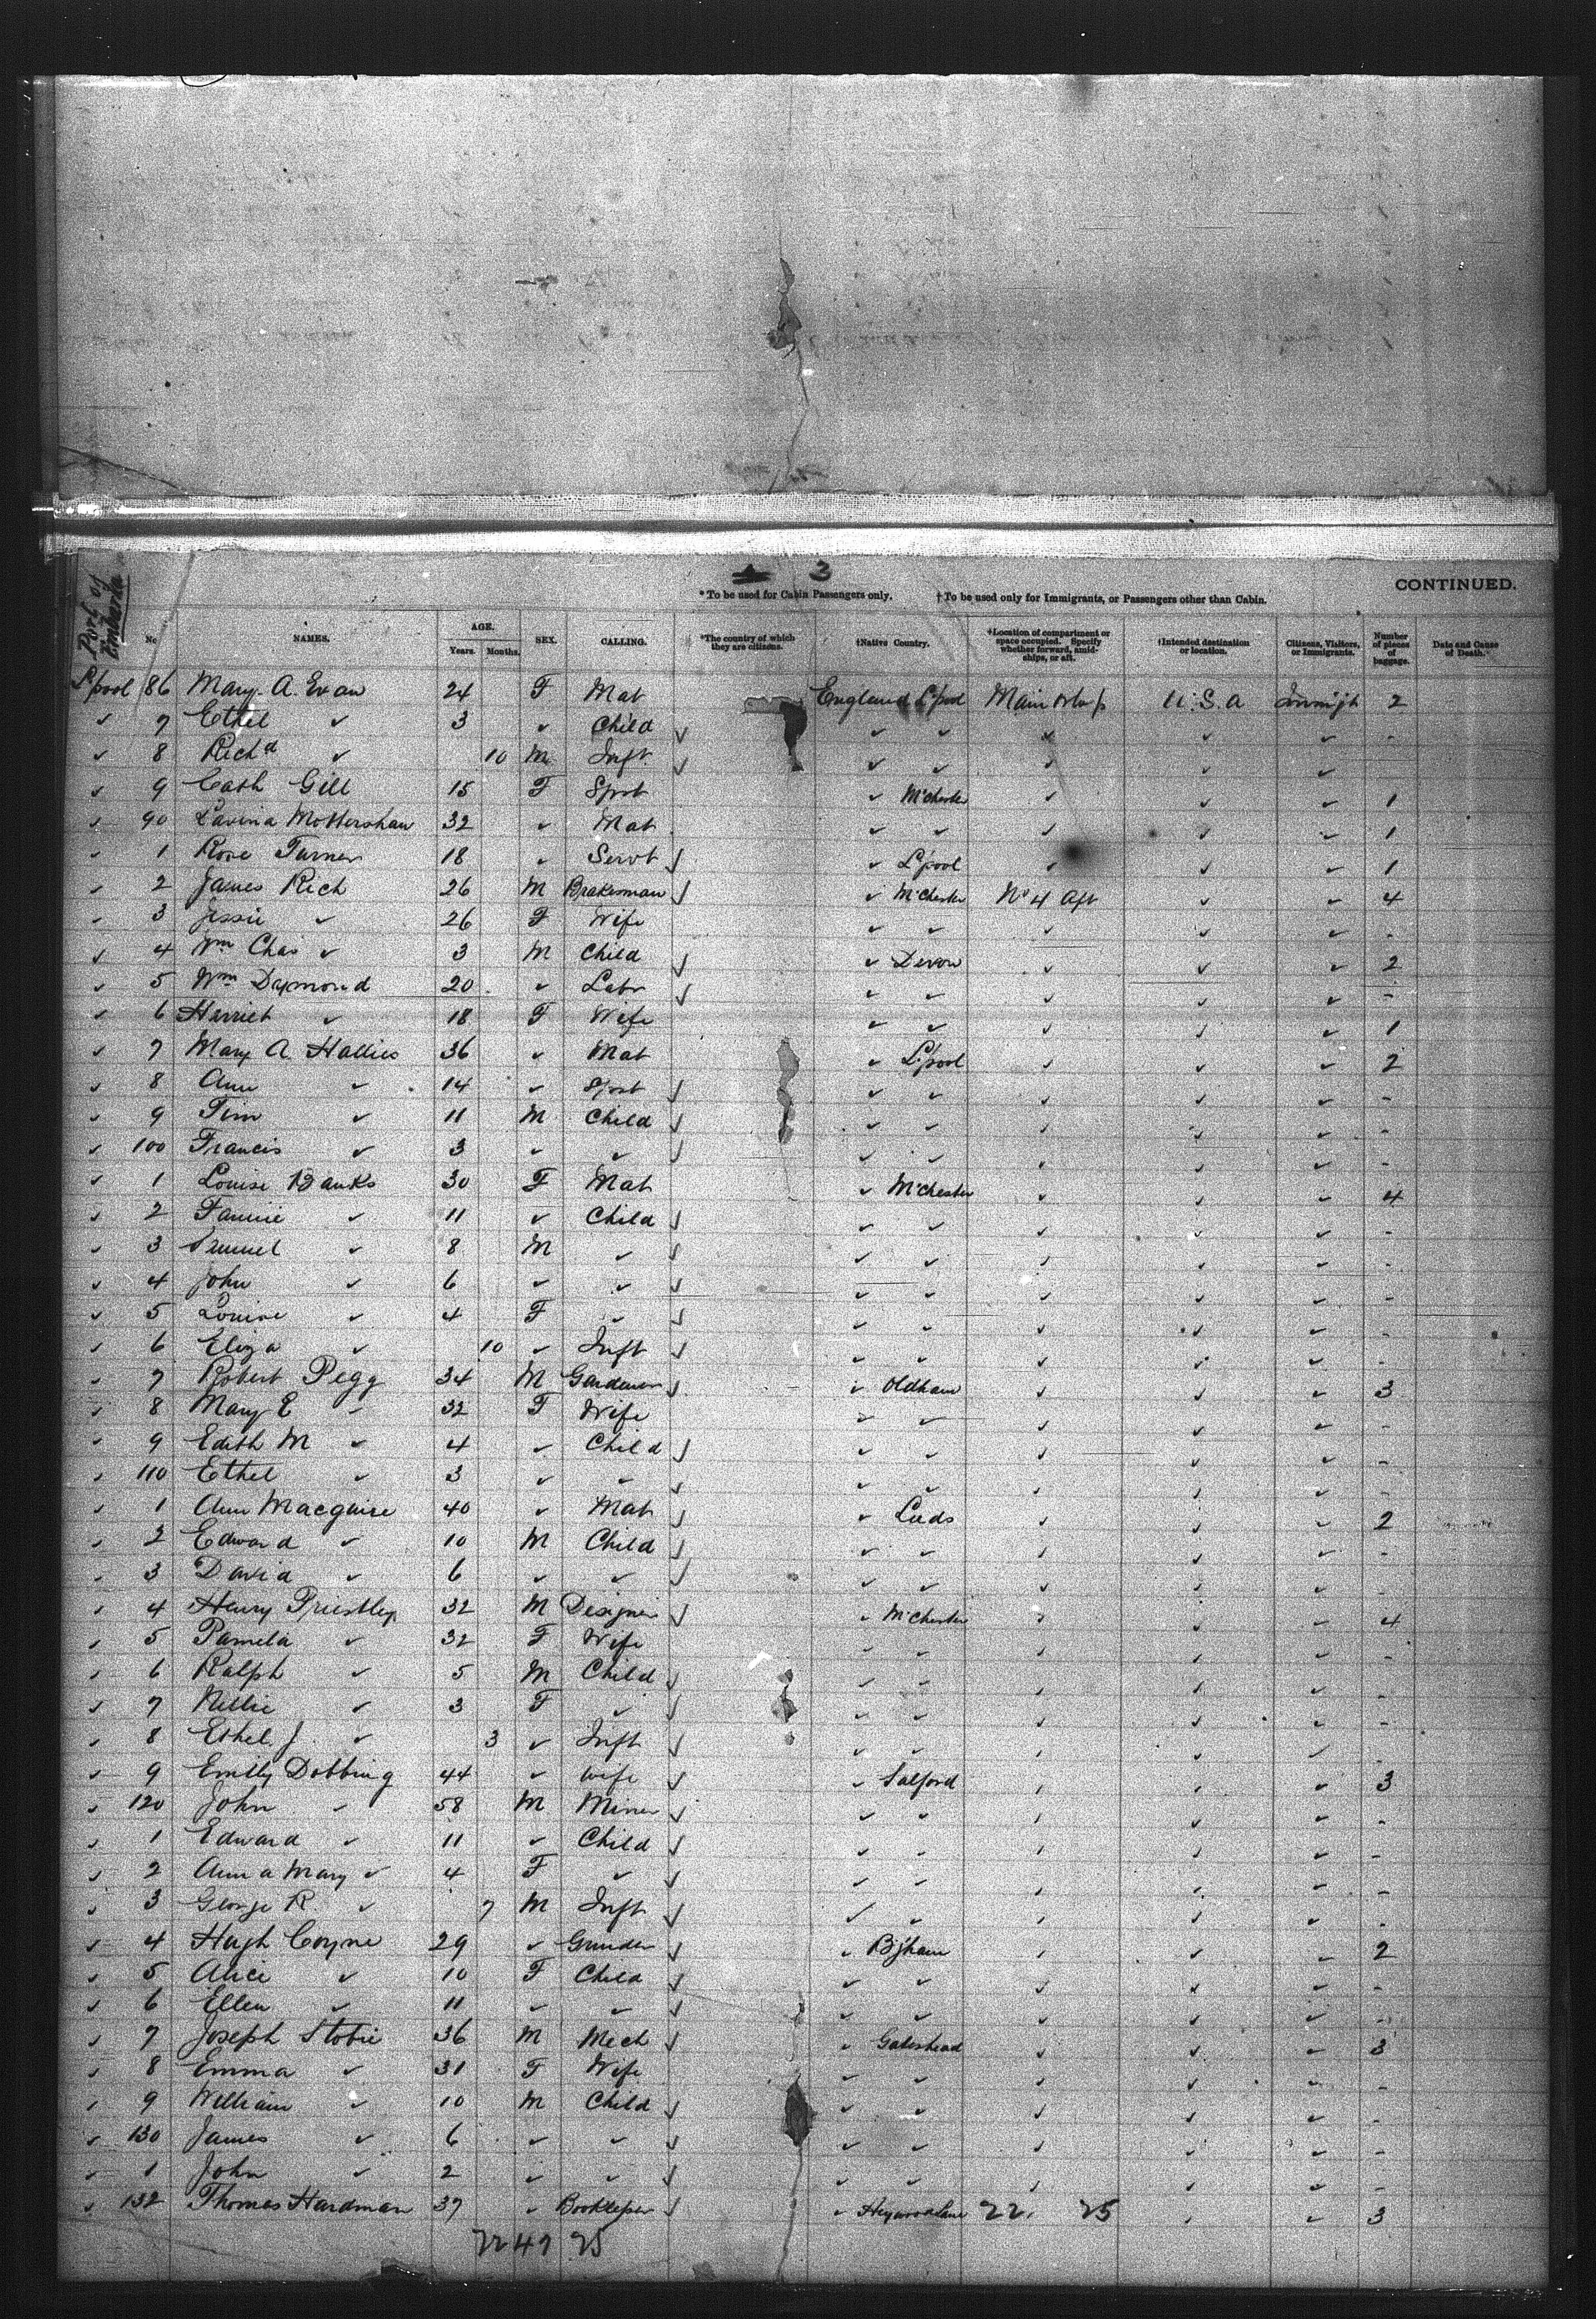 3
CONTINUED.
* To be used for Cabin Passengers only. † To be used only for Immigrants, or Passengers other than Cabin.
Port of Embarka
No NAMES. AGE. Years. Months. SEX. CALLING. *The country of which they are citizens. †Native Country. †Location of compartment or space occupied. Specify whether forward, amidships, or aft. †Intended destination or location. Citizens, Visitors, or Immigrants. Number of pieces of baggage. Date and Cause of Death.
L'pool 86 Mary A. Evan 24 F Mat England L'pool Main U.S.A 2
✓ 7 Ethel ✓ 3 ✓ Child ✓ ✓ ✓ ✓ ✓ -
✓ 8 Richd ✓ 10 M Inft ✓ ✓ ✓ ✓ ✓
✓ 9 Cath Gill 15 F Spst ✓ M'chester ✓ ✓ ✓ 1
✓ 90 Lavina Mottershaw 32 ✓ Mat ✓ ✓ ✓ ✓ ✓ 1
✓ 1 Rose Turner 18 ✓ Servt ✓ L'pool ✓ ✓ ✓ 1
✓ 2 James Rich 26 M Brakesman ✓ M'chester No 4 Aft ✓ ✓ 4
✓ 3 Jessie ✓ 26 F Wife ✓ ✓ ✓ ✓ ✓ -
✓ 4 Wm Chas ✓ 3 M Child ✓ Devon ✓ ✓ ✓ 2
✓ 5 Wm Daymond 20 ✓ Labr ✓ ✓ ✓ ✓ ✓ -
✓ 6 Harriet ✓ 18 F Wife ✓ ✓ ✓ ✓ ✓ 1
✓ 7 Mary A. Hallies 36 ✓ Mat ✓ L'pool ✓ ✓ ✓ 2
✓ 8 Ann ✓ 14 ✓ Spst ✓ ✓ ✓ ✓ ✓ -
✓ 9 Tim ✓ 11 M Child ✓ ✓ ✓ ✓ ✓ -
✓ 100 Francis ✓ 3 ✓ ✓ ✓ ✓ ✓ ✓ ✓ -
✓ 1 Louise Banks 30 F Mat ✓ M'chester ✓ ✓ ✓ 4
✓ 2 Fannie ✓ 11 ✓ Child ✓ ✓ ✓ ✓ ✓ -
✓ 3 Samuel ✓ 8 M ✓ ✓ ✓ ✓ ✓ ✓ -
✓ 4 John ✓ 6 ✓ ✓ ✓ ✓ ✓ ✓ ✓ -
✓ 5 Louise ✓ 4 F ✓ ✓ ✓ ✓ ✓ ✓ -
✓ 6 Eliza ✓ 10 ✓ Inft ✓ ✓ ✓ ✓ ✓ -
✓ 7 Robert Pegg 34 M Gardener ✓ Oldham ✓ ✓ ✓ 3
✓ 8 Mary E ✓ 32 F Wife ✓ ✓ ✓ ✓ ✓ -
✓ 9 Edith M ✓ 4 ✓ Child ✓ ✓ ✓ ✓ ✓ -
✓ 110 Ethel ✓ 3 ✓ ✓ ✓ ✓ ✓ ✓ ✓ -
✓ 1 Ann Macguire 40 ✓ Mat ✓ Leeds ✓ ✓ ✓ 2
✓ 2 Edward ✓ 10 M Child ✓ ✓ ✓ ✓ ✓ -
✓ 3 David ✓ 6 ✓ ✓ ✓ ✓ ✓ ✓ ✓ -
✓ 4 Henry Priestley 32 M Designer ✓ M'chester ✓ ✓ ✓ 4
✓ 5 Pamela ✓ 32 F Wife ✓ ✓ ✓ ✓ ✓ -
✓ 6 Ralph ✓ 5 M Child ✓ ✓ ✓ ✓ ✓ -
✓ 7 Nellie ✓ 3 F ✓ ✓ ✓ ✓ ✓ ✓ -
✓ 8 Ethel J. ✓ 3 ✓ Inft ✓ ✓ ✓ ✓ ✓
✓ 9 Emily Dobbing 44 ✓ Wife ✓ Salford ✓ ✓ ✓ 3
✓ 120 John ✓ 58 M Miner ✓ ✓ ✓ ✓ ✓ -
✓ 1 Edward ✓ 11 ✓ Child ✓ ✓ ✓ ✓ ✓ -
✓ 2 Anna Mary ✓ 4 F ✓ ✓ ✓ ✓ ✓ ✓ -
✓ 3 George R. ✓ 7 M Inft ✓ ✓ ✓ ✓ ✓ -
✓ 4 Hugh Coyne 29 ✓ Grinder ✓ B'ham ✓ ✓ ✓ 2
✓ 5 Alice ✓ 10 F Child ✓ ✓ ✓ ✓ ✓ -
✓ 6 Ellen ✓ 11 ✓ ✓ ✓ ✓ ✓ ✓ ✓ -
✓ 7 Joseph Stobie 36 M Mech ✓ Gateshead ✓ ✓ ✓ 3
✓ 8 Emma ✓ 31 F Wife ✓ ✓ ✓ ✓ ✓ -
✓ 9 William ✓ 10 M Child ✓ ✓ ✓ ✓ ✓ -
✓ 130 James ✓ 6 ✓ ✓ ✓ ✓ ✓ ✓ ✓ -
✓ 1 John ✓ 2 ✓ ✓ ✓ ✓ ✓ ✓ ✓ -
✓ 132 Thomas Hardman 37 ✓ Bookkeeper ✓ 22. 25 ✓ ✓ 3
22 47 25